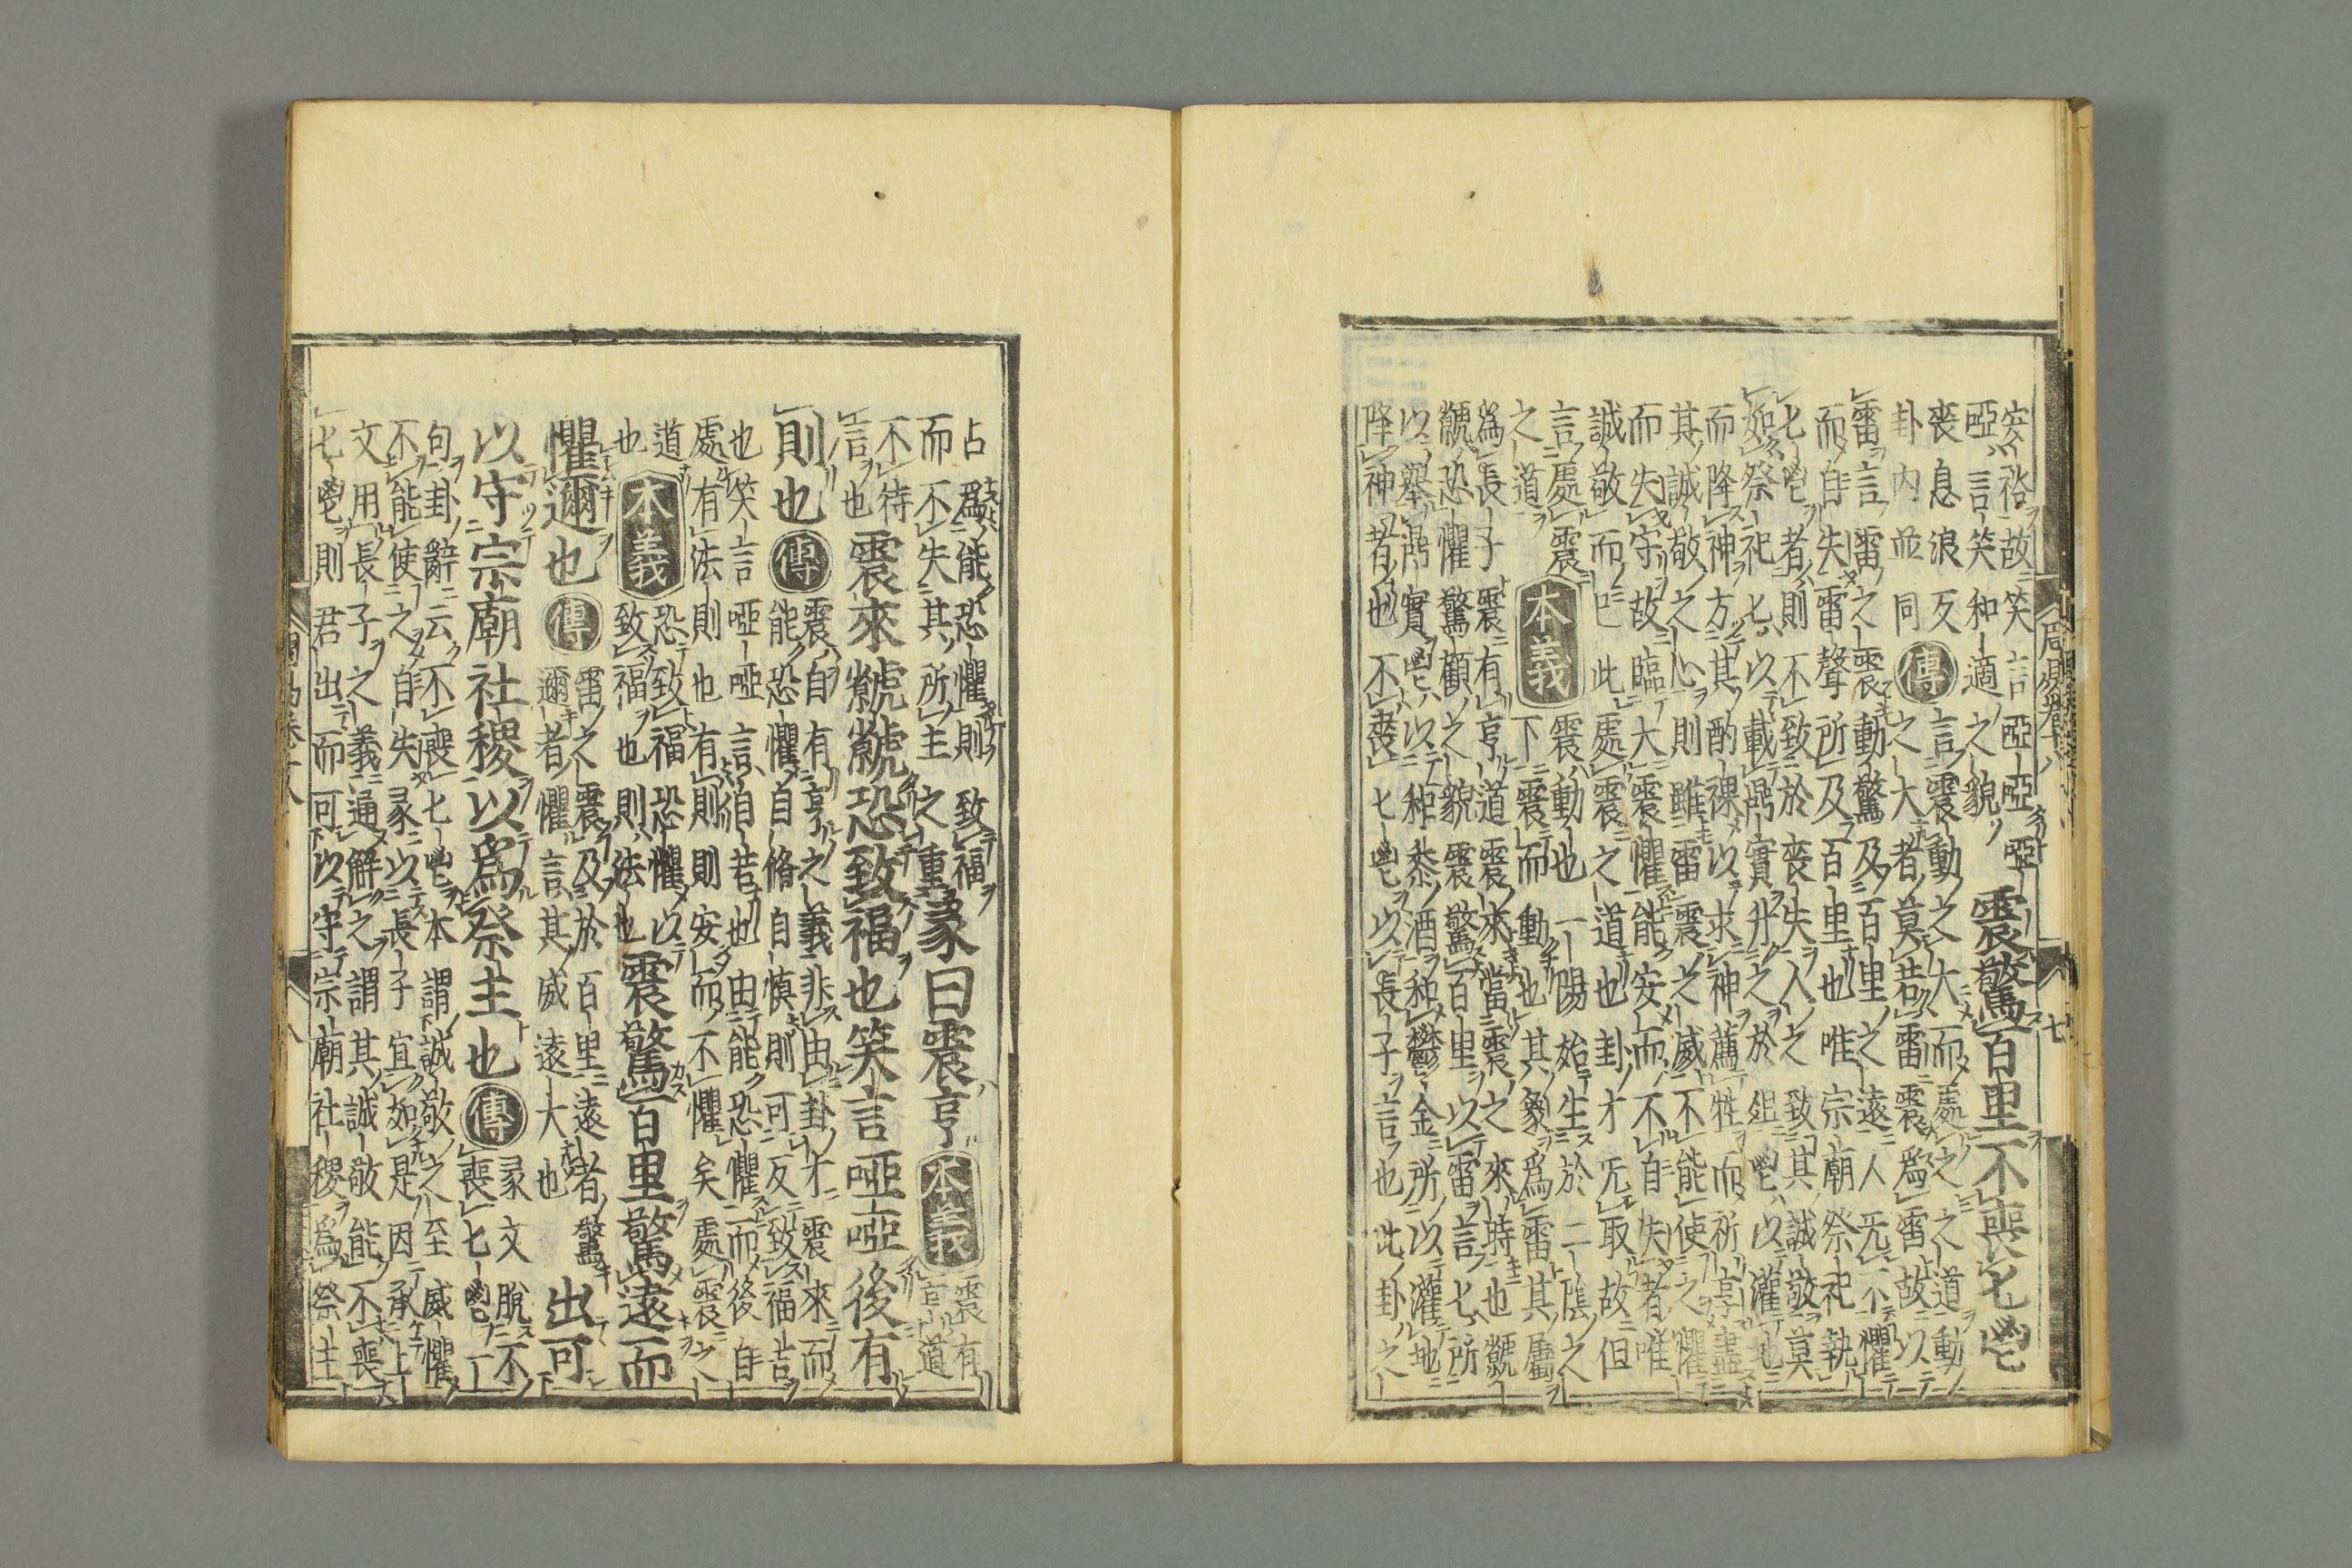 周易卷十八 七
安裕故笑言啞啞
啞言笑和適之貌
震驚百里不喪匕鬯
喪息浪反
卦内並同
傳
言震動之大而處之之道動
之大者莫若雷震爲雷故以
雷言雷之震動驚及百里之遠人无不懼
而自失雷聲所及百里也唯宗廟祭祀執
匕鬯者則不致於喪失人之致其誠敬莫
如祭祀匕以載鼎實升之於俎鬯以灌地
而降神方其酌祼以求神薦牲而祈享盡
其誠敬之心則雖雷震之威不能使之懼
而失守故臨大震懼能安而不自失者唯
誠敬而已此處震之道也卦才无取故但
言處震
之道
本義
震動也一陽始生於二陰之
下震而動也其象爲雷其屬
爲長子震有亨道震來當震之來時也虩
虩恐懼驚顧之貌震驚百里以雷言匕所
以舉鼎實鬯以秬黍酒和鬱金所以灌地
降神者也不喪匕鬯以長子言也此卦之
占爲能恐懼則致福
而不失其所主之重
彖曰震亨
本義
震有
亨道
不待
言也
震來虩虩恐致福也笑言啞啞後有
則也
傳
震自有亨之義非由卦才震來而
能恐懼自脩自慎則可反致福吉
也笑言啞啞言自若也由能恐懼而後自
處有法則也有則則安而不懼矣處震之
道
也
本義
恐致福恐懼以
致福也則法也
震驚百里驚遠而
懼邇也
傳
雷之震及於百里遠者驚
邇者懼言其威遠大也
出可
以守宗廟社稷以爲祭主也
傳
彖文脫不
喪匕鬯一
句卦辭云不喪匕鬯本謂誠敬之至威懼
不能使之自失彖以長子宜如是因承上
文用長子之義通解之謂其誠敬能不喪
匕鬯則君出而可以守宗廟社稷爲祭主
周易卷十八 八